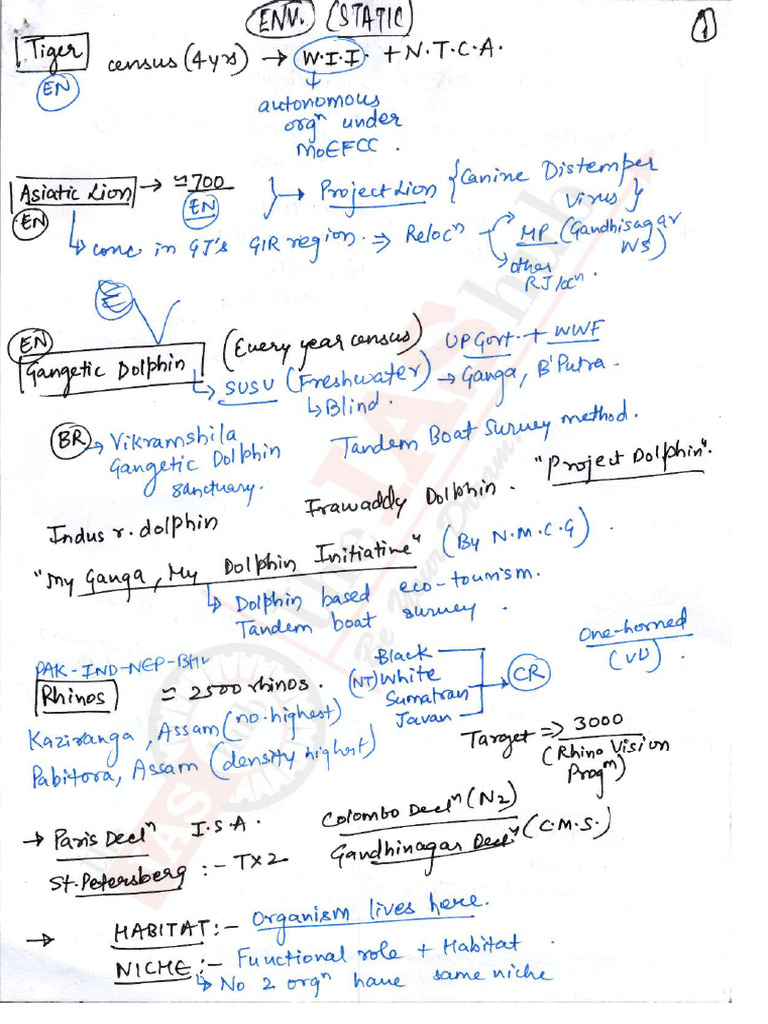 ENV. (STATIC)
1
Tiger census (4yrs) → W.I.I. + N.T.C.A.
EN
autonomous
orgⁿ under
MOEFCC.
Asiatic Lion → ≃700 } → Project Lion { Canine Distemper
EN
Virus }
EN
↳ conc in GJ's GIR region. ⇒ Relocⁿ → MP (Gandhisagar
WS)
→ other
RJ locⁿ.
E
EN
Gangetic Dolphin (Every year census) UP Govt. + WWF
↳ SUSU (Freshwater) → Ganga, B'Putra.
↳ Blind.
BR → Vikramshila
Gangetic Dolphin
Sanctuary.
Tandem Boat Survey method.
"Project Dolphin".
Indus r. dolphin
Irawaddy Dolphin.
"My Ganga, My Dolphin Initiative" (By N.M.C.G).
↳ Dolphin based eco-tourism.
Tandem boat survey.
PAK-IND-NEP-BHU
Rhinos ≃ 2500 rhinos.
Black
(NT) White
Sumatran
Javan
→ CR
One-horned
(VU).
Kaziranga, Assam (no. highest)
Pabitora, Assam (density highest)
Target ⇒ 3000
(Rhino Vision
Progᵐ)
→ Paris Declⁿ I.S.A. Colombo Declⁿ (N2)
St. Petersberg :- TX2 Gandhinagar Declⁿ (C.M.S.)
→ HABITAT :- Organism lives here.
NICHE :- Functional role + Habitat.
↳ No 2 orgⁿ have same niche
the IAS hub
Be Your Dream..